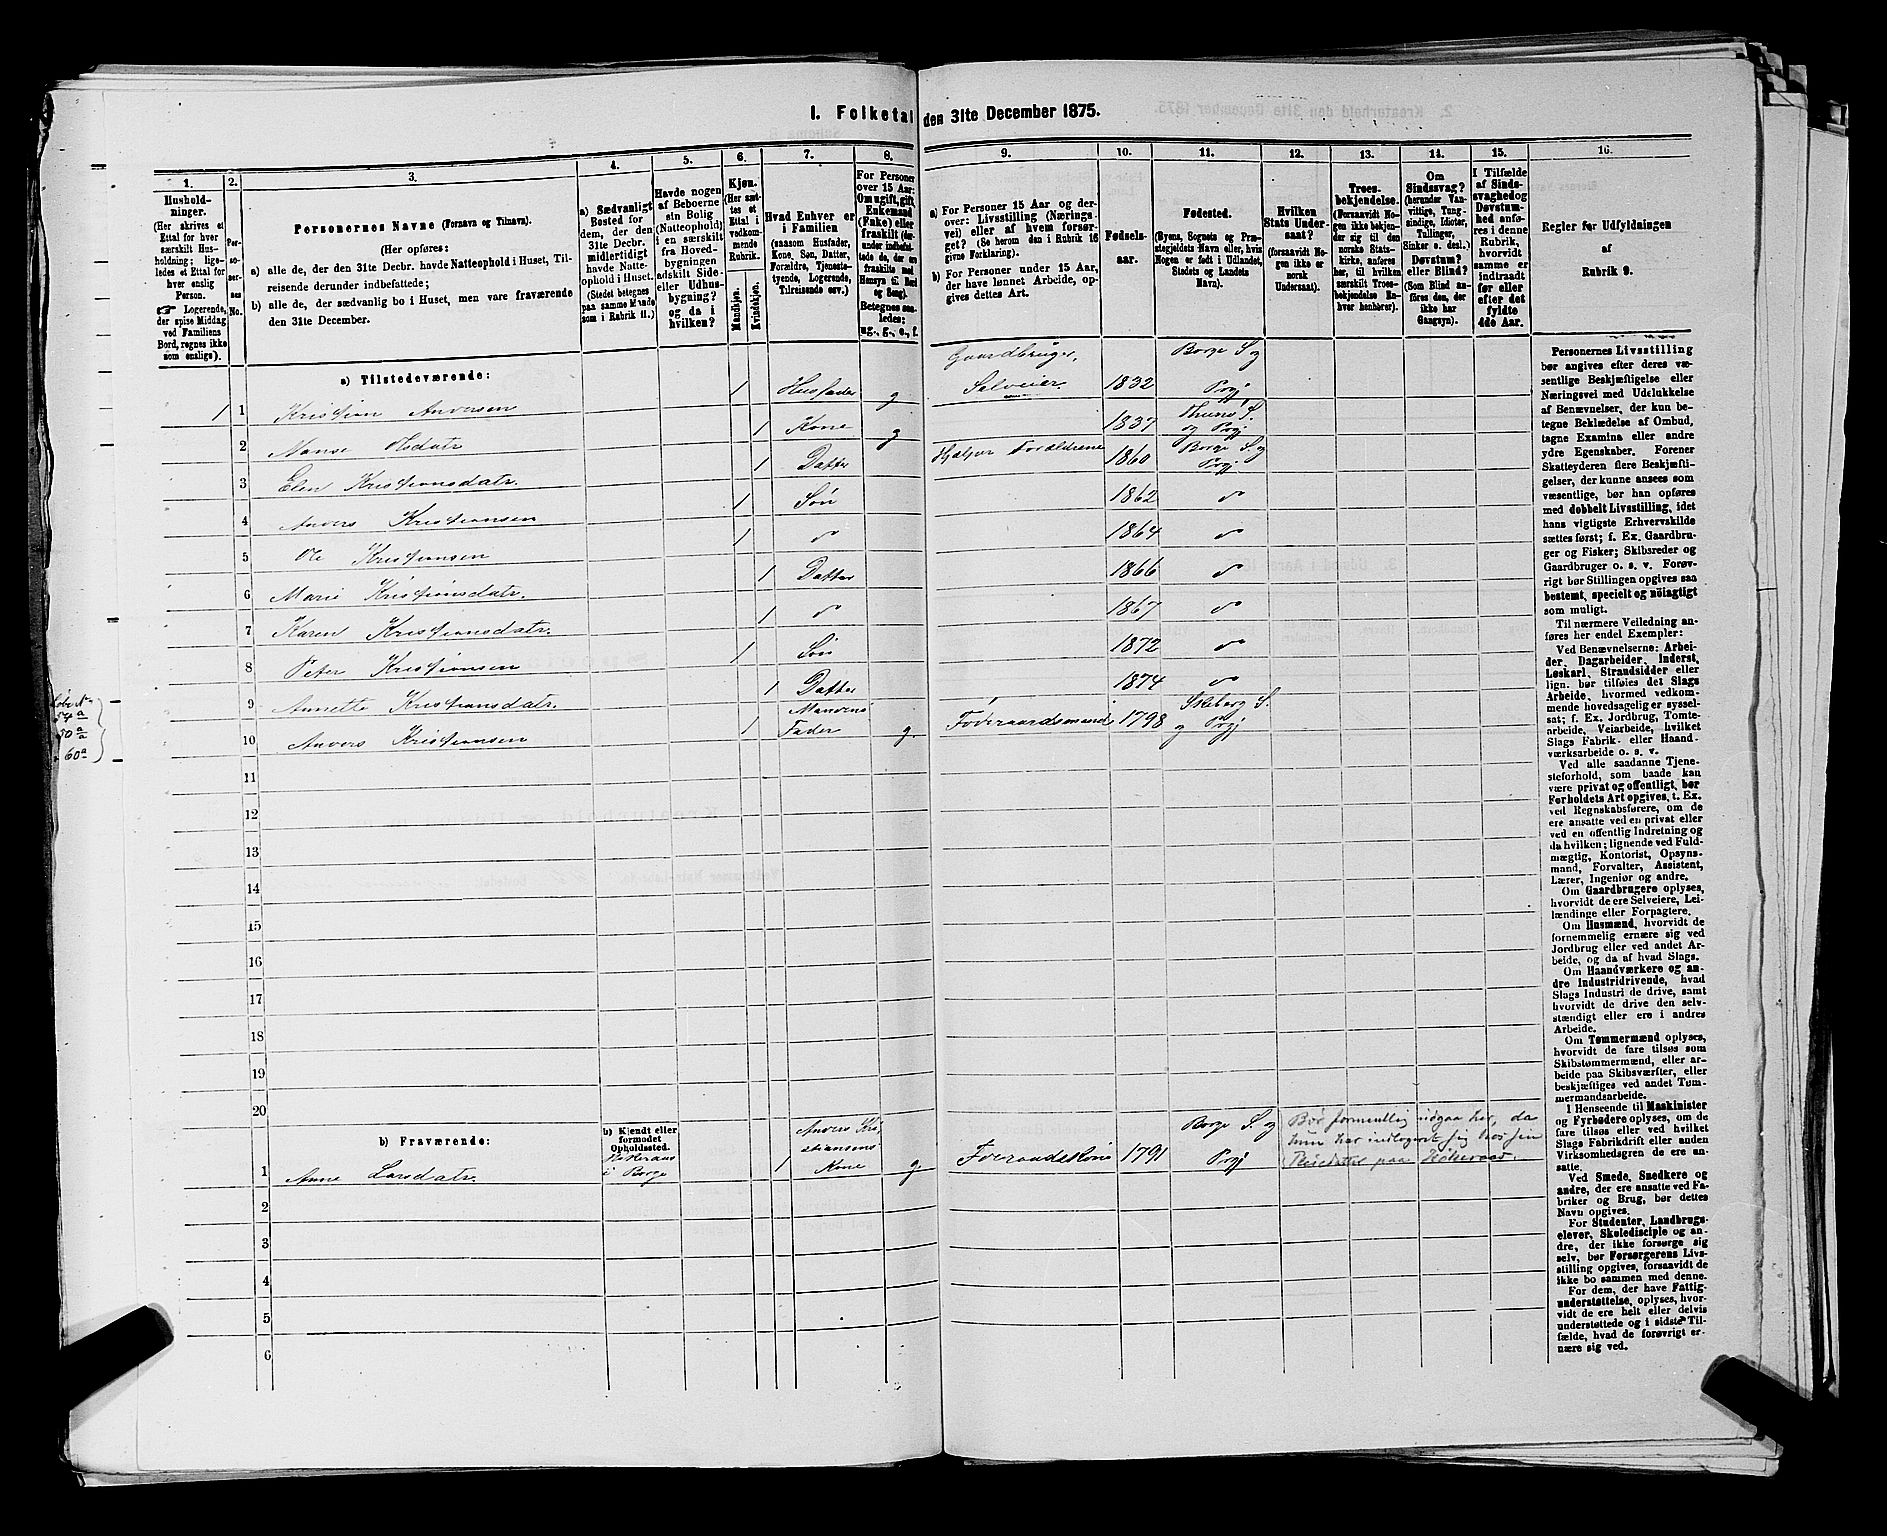 1. Folketal den 31te December 1875.
1.
Hushold-
ninger.
(Her skrives et
Ettal for hver
særskilt Hus-
holdning; lige-
ledes et Ettal for
hver enslig
Person.
☞ Logerende,
der spise Middag
ved Familiens
Bord, regnes ikke
som enslige).
2.
Per-
so-
ner-
nes
No.
3.
Personernes Navne (Fornavn og Tilnavn).
(Her opføres:
a) alle de, der den 31te Decbr. havde Natteophold i Huset, Til-
reisende derunder indbefattede;
b) alle de, der sædvanlig bo i Huset, men vare fraværende
den 31te December.
4.
a) Sædvanligt
Bosted for
dem, der den
31te Decbr.
midlertidigt
havde Natte-
ophold i Huset.
(Stedet betegnes
paa samme Maade
som i Rubrik 11.)
5.
Havde nogen
af Beboerne
sin Bolig
(Natteophold)
i en særskilt
fra Hoved-
bygningen
adskilt Side-
eller Udhus-
bygning?
og da i
hvilken?
6.
Kjøn.
(Her sæt-
tes et
Ettal i
vedkom-
mende
Rubrik.
Mandkjøn.
Kvindekjøn.
7.
Hvad Enhver er
i Familien
(saasom Husfader,
Kone, Søn, Datter,
Forældre, Tjeneste-
tyende, Logerende,
Tilreisende osv.)
8.
For Personer
over 15 Aar:
Om ugift, gift,
Enkemand
(Enke) eller
fraskilt (der-
under indbefat-
tede de, der ere
fraskilte med
Hensyn til Bord
og Seng).
Betegnes saa-
ledes:
ug., g., e., f.
9.
a) For Personer 15 Aar og der-
over: Livsstilling (Nærings-
vei) eller af hvem forsør-
get? (Se herom den i Rubrik 16
givne Forklaring).
b) For Personer under 15 Aar,
der have lønnet Arbeide, op-
gives dettes Art.
10.
Fødsels-
aar.
11.
Fødested.
(Byens, Sognets og Præ-
stegjeldets Navn eller, hvis
Nogen er født i Udlandet,
Stedets og Landets
Navn).
12.
Hvilken
Stats Under-
saat?
(forsaavidt No-
gen ikke er
norsk
Undersaat).
13.
Troes-
bekjendelse.
(Forsaavidt No-
gen ikke bekjen-
der sig til den
norske Stats-
kirke, anføres
her, til hvilken
særskilt Troes-
bekjendelse En-
hver henhører).
14.
Om
Sindssvag?
(herunder Van-
vittige, Tung-
sindige, Idioter,
Tullinger,
Sinker o. desl.)
Døvstum?
eller Blind?
(Som Blind an-
føres den, der
ikke har
Gangsyn).
15.
I Tilfælde
af Sinds-
svaghed og
Døvstum-
hed anfø-
res i denne
Rubrik,
hvorvidt
samme er
indtraadt
før eller
efter det
fyldte
4de Aar.
16.
Regler for Udfyldningen
af
Rubrik 9.
a) Tilstedeværende:
1 1 Kristian Andersen 1 Husfader g. Gaardbruger, Selveier 1832 Borge S og Prgj
2 Olsdatr 1 Kone g 1837 S. og Prgj
3 Elen Kristiansdatr. 1 Datter Hjælper Forældrene 1860 Borge S. og Prgj
4 Anders Kristiansen 1 Søn 1862 do
5 Ole Kristiansen 1 do 1864 do
6 Marie Kristiansdatr. 1 Datter 1866 do
7 Karen Kristiansdatr. 1 do 1867 do
8 Peter Kristiansen 1 Søn 1872 do
9 Annette Kristiansdatr. 1 Datter 1874 do
10 Anders Kristiansen 1 Mandens Fader g. Føderaadsmand 1798 S. og Prgj
54a
50a
60a
11
12
13
14
15
16
17
18
19
20
b) Fraværende:
b) Kjendt eller
formodet
Opholdssted.
1 Anne Larsdatr. i Borge 1 Anders Kristiansens Kone g. Føderaadskone 1791 Borge S. og Prgj
Bør formentlig udgaa her, da
hun har indlogeret sig hos sin
paa
2
3
4
5
6
Personernes Livsstilling
bør angives efter deres væ-
sentlige Beskjæftigelse eller
Næringsvei med Udelukkelse
af Benævnelser, der kun be-
tegne Beklædelse af Ombud,
tagne Examina eller andre
ydre Egenskaber. Forener
Skatteyderen flere Beskjæfti-
gelser, der kunne ansees som
væsentlige, bør han opføres
med dobbelt Livsstilling, idet
hans vigtigste Erhvervskilde
sættes først; f. Ex. Gaardbru-
ger og Fisker; Skibsreder og
Gaardbruger o. s. v. Forøv-
rigt bør Stillingen opgives saa
bestemt, specielt og nöiagtigt
som muligt.
Til nærmere Veiledning an-
føres her endel Exempler:
Ved Benævnelserne: Arbei-
der, Dagarbeider, Inderst,
Løskarl, Strandsidder eller
lign. bør tilføies det Slags
Arbeide, hvormed vedkom-
mende hovedsagelig er syssel-
sat; f. Ex. Jordbrug, Tomte-
arbeide, Veiarbeide, hvilket
Slags Fabrik- eller Haand-
værksarbeide o. s. v.
Ved alle saadanne Tjene-
steforhold, som baade kan
være privat og offentligt, bør
Forholdets Art opgives, t. Ex.
ved Regnskabsførere, om de
ere ansatte ved en privat eller
ved en offentlig Indretning og
da hvilken; lignende ved Fuld-
mægtig, Kontorist, Opsyns-
mand, Forvalter, Assistent,
Lærer, Ingeniør og andre.
Om Gaardbrugere oplyses,
hvorvidt de ere Selveiere, Lei-
lændinge eller Forpagtere.
Om Husmænd, hvorvidt de
fornemmelig ernære sig ved
Jordbrug eller ved andet Ar-
beide, og da af hvad Slags.
Om Haandværkere og an-
dre Industridrivende, hvad
Slags Industri de drive, samt
hvorvidt de drive den selv-
stændigt eller ere i andres
Arbeide.
Om Tømmermænd oplyses,
hvorvidt de fare tilsøs som
Skibstømmermænd, eller ar-
beide paa Skibsværfter, eller
beskjæftiges ved andet Tøm-
mermandsarbeide.
I Henseende til Maskinister
og Fyrbødere oplyses, om de
fare tilsøs eller ved hvilket
Slags Fabrikdrift eller anden
Virksomhedsgren de ere an-
satte.
Ved Smede, Snedkere og
andre, der ere ansatte ved Fa-
briker og Brug, bør dettes
Navn opgives.
For Studenter, Landbrugs-
elever, Skoledisciple og an-
dre, der ikke forsørge sig
selv, bør Forsørgerens Livs-
stilling opgives, forsaavidt de
ikke bo sammen med denne.
For dem, der have Fattig-
understøttelse, oplyses, hvor-
vidt de ere helt eller delvis
understøttede og i sidste Til-
fælde, hvad de forøvrigt er-
nære sig ved.